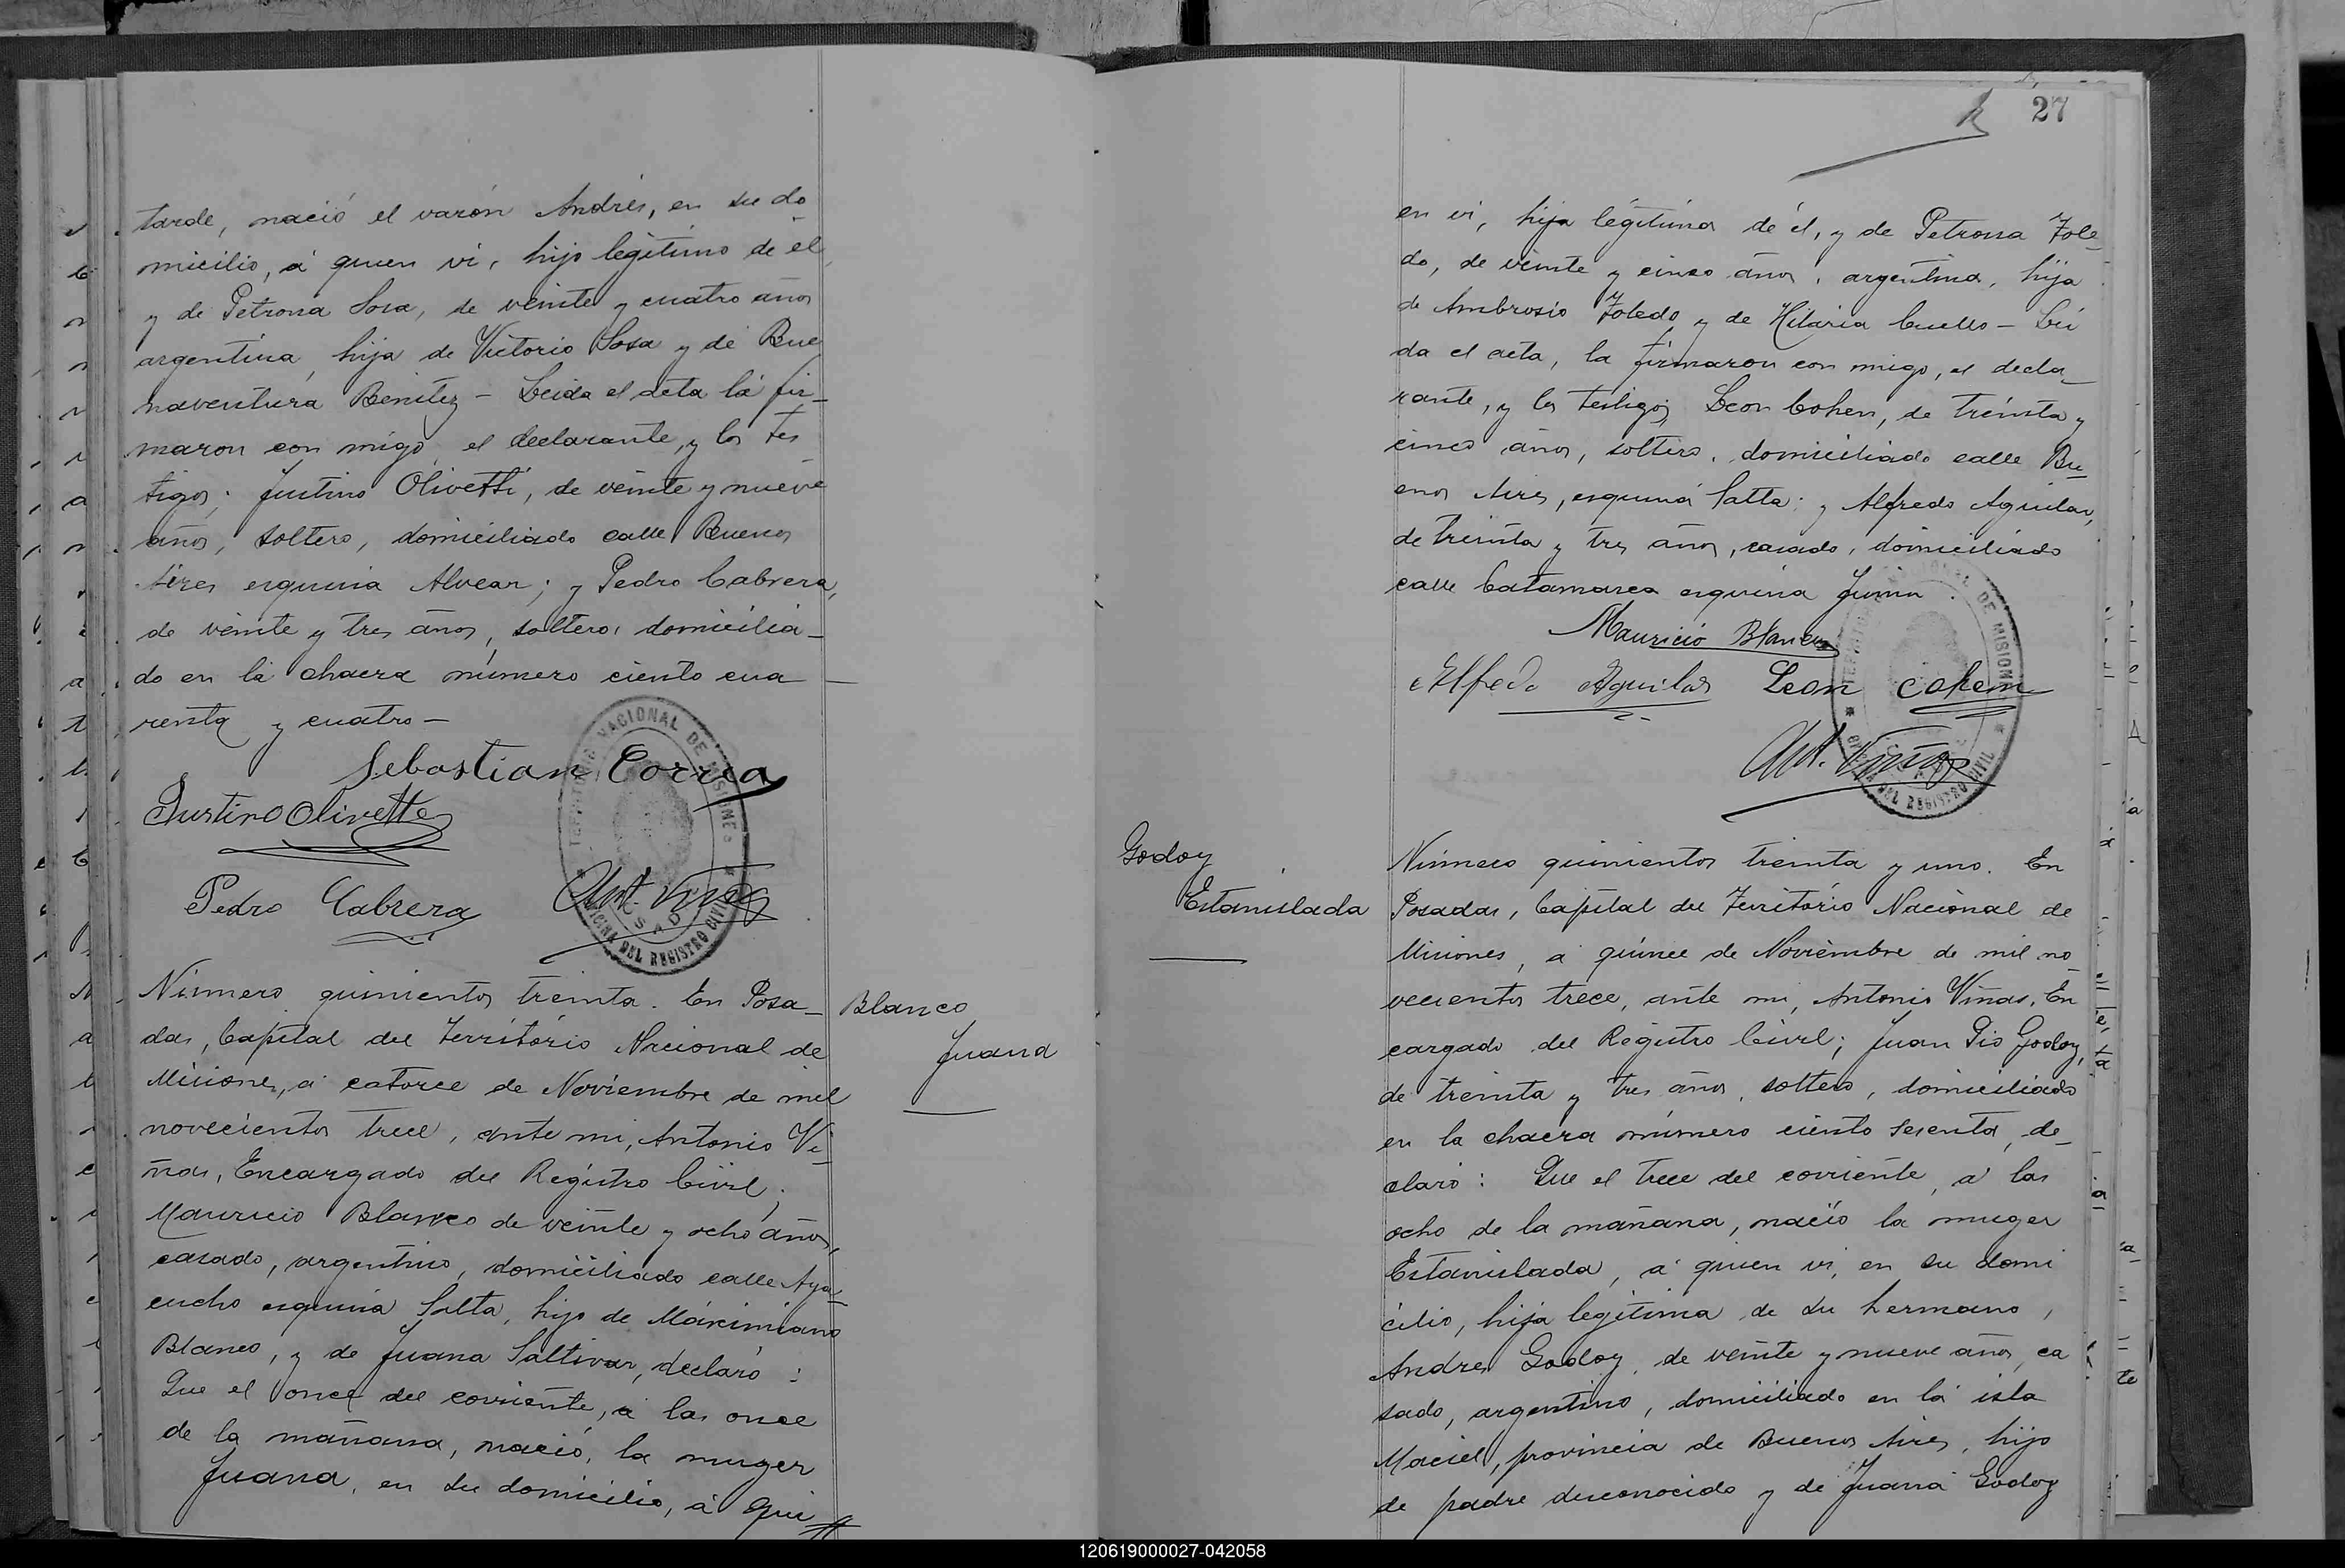 tarde, nació el varón Andrés, en su do
micilio, á quien vi, hijo legítimo de él
y de Petrona Sosa, de veinte y cuatro años
argentina, hija de Victorio Sosa y de Bue
naventura Benitez – Leida el acta la fir_
maron con migo, el declarante, y los tes
tigos; Justino Olivetti, de veinte y nueve
años, soltero, domiciliado calle Buenos
Aires esquina Alvear; y Pedro Cabrera,
de veinte y tres años, soltero, domicilia_
do en la chacra número ciento cua_
renta y cuatro –
Sebastian Correa
Justino Olivette
Pedro Cabrera Ant. Viñas
TERRITORIO NACIONAL DE MISIONES
OFICINA DEL REGISTRO CIVIL
Número quinientos treinta. En Posa_
das, Capital del Territorio Nacional de
Misiones, á catorce de Noviembre de mil
novecientos trece, ante mi, Antonio Vi_
ñas, Encargado del Registro Civil;
Mauricio Blanco de veinte y ocho años,
casado, argentino, domiciliado calle Aya_
cucho esquina Salta, hijo de Máximiano
Blanco, y de Juana Saltivar, declaró:
Que el once del corriente, á las once
de la mañana, nació, la muger
Juana, en su domicilio, á qui
Blanco
Juana
27
en vi, hija légitima de él, y de Petrona Tole_
do, de veinte y cinco años, argentina, hija
de Ambrosio Toledo y de Hilaria Cuello – Leí
da el acta, la firmaron con migo, el decla_
rante, y los testigos Leon Cohen, de treinta y
cinco años, soltero, domiciliado calle Bu_
enos Aires, esquina Salta; y Alfredo Aguilar,
de treinta y tres años, casado, domiciliado
calle Catamarca esquina Junin.
Mauricio Blanco
Alfredo Aguilar Leon Cohem
Ant. Viñas
DE MISIONES
DEL REGISTRO CIVIL
Godoy
Estanislada
Número quinientos treinta y uno. En
Posadas, Capital del Territorio Nacional de
Misiones, á quince de Noviembre de mil no_
vecientos trece, ante mi, Antonio Viñas, En
cargado del Registro Civil; Juan Pio Godoy,
de treinta y tres años, soltero, domiciliado
en la chacra número ciento sesenta, de_
claró: Que el trece del corriente, á las
ocho de la mañana, nació la muger
Estanislada, á quien vi, en su domi
cilio, hija legítima de su hermano,
Andres Godoy, de veinte y nueve años, ca
sado, argentino, domiciliado en la isla
Maciel, provincia de Buenos Aires, hijo
de padre desconocido y de Juana Godoy
120619000027-042058